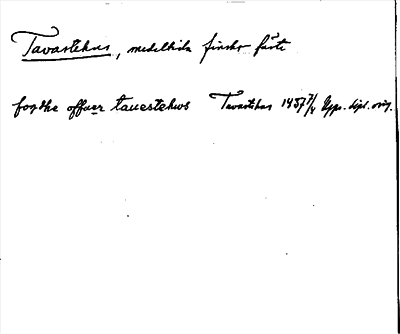 Tavastehus, medeltida finskt fäste
fogdhe offuer tauestehws Tavastehus 1457 7/4 Upps. dipl. orig.